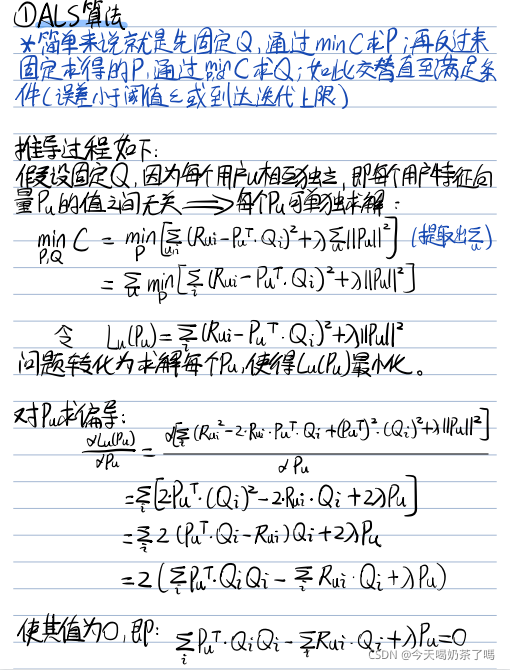 ①ALS算法
*简单来说就是先固定Q,通过minC求P;再反过来
固定求得的P,通过minC求Q;如此交替直至满足条
件(误差小于阈值ε或到达迭代上限)
推导过程如下:
假设固定Q,因为每个用户u相互独立,即每个用户特征向
量Pu的值之间无关 ⟹ 每个Pu可单独求解:
min_{P,Q} C = min_P [Σ_{u,i} (Rui-Pu^T·Qi)²+λΣ_u||Pu||²] (提取出Σ_u)
= Σ_u min_P [Σ_i (Rui-Pu^T·Qi)²+λ||Pu||²]
令 Lu(Pu)=Σ_i (Rui-Pu^T·Qi)²+λ||Pu||²
问题转化为求解每个Pu,使得Lu(Pu)最小化。
对Pu求偏导:
dLu(Pu)/dPu = d[Σ_i (Rui²-2·Rui·Pu^T·Qi+(Pu^T)²·(Qi)²+λ||Pu||²]/dPu
=Σ_i [2·Pu^T·(Qi)²-2·Rui·Qi+2λPu]
=Σ_i 2(Pu^T·Qi-Rui)Qi+2λPu
=2(Σ_i Pu^T·QiQi-Σ_i Rui·Qi+λPu)
使其值为0,即: Σ_i Pu^T·QiQi-Σ_i Rui·Qi+λPu=0
CSDN @今天喝奶茶了嗎